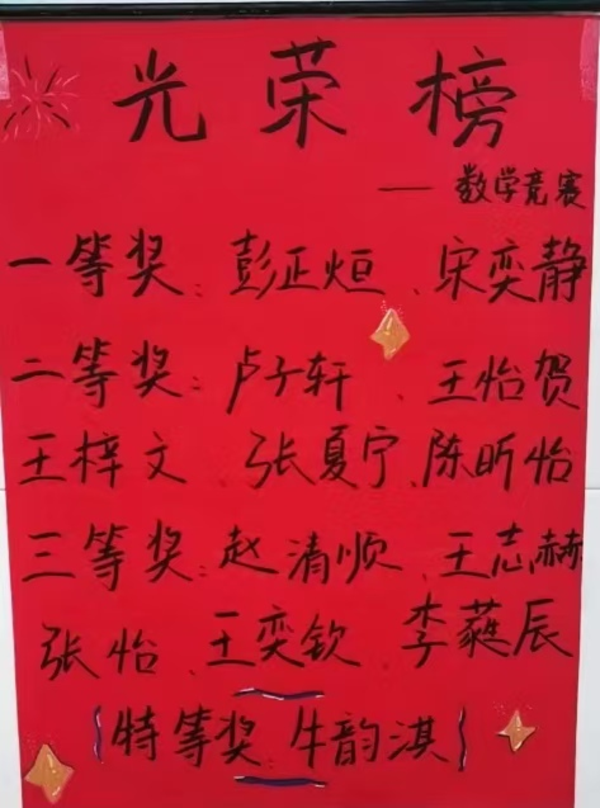 光荣榜
—— 数学竞赛
一等奖：彭正烜、宋奕静
二等奖：卢子轩、王怡贺
王梓文、张夏宁、陈昕怡
三等奖：赵清顺、王志赫
张怡、王奕钦、李蕤辰
特等奖：牛韵淇